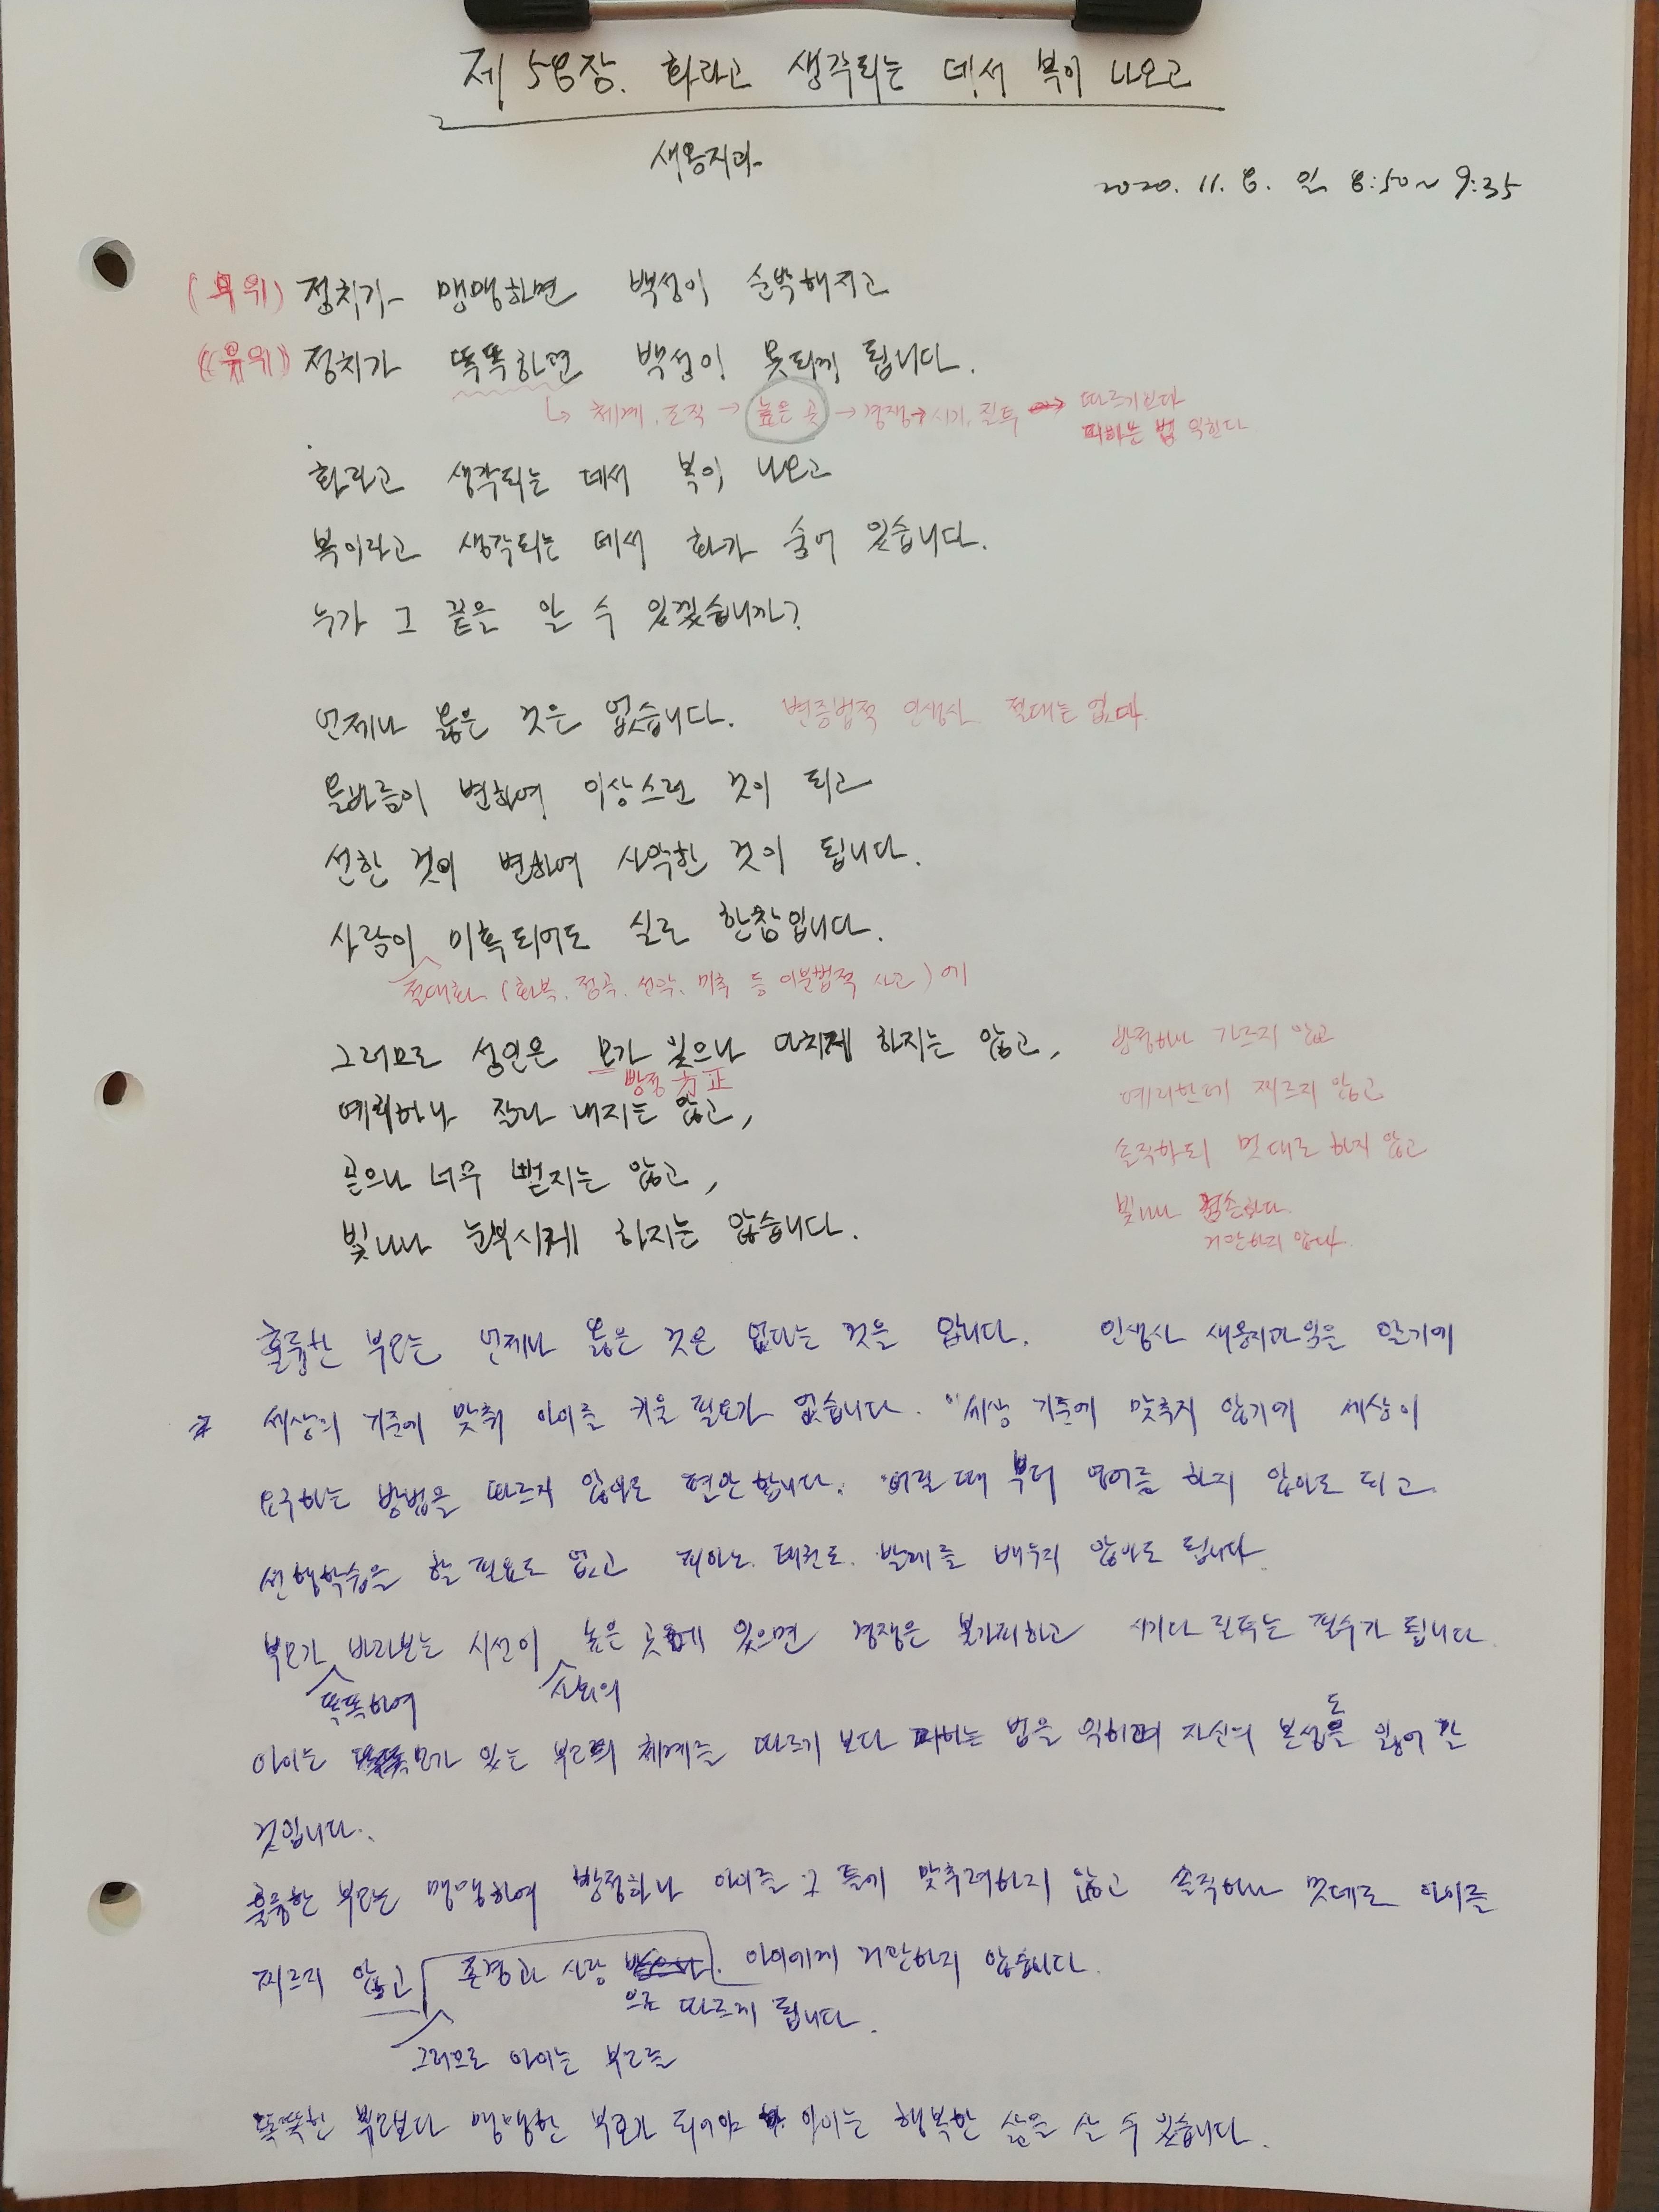 제 58장. 화라고 생각되는 데서 복이 나오고
새옹지마
2020. 11. 8. 일 8:50~9:35
(무위) 정치가 맹맹하면 백성이 순박해지고
(유위) 정치가 똑똑하면 백성이 못되게 됩니다.
↳ 체계, 조직 → 높은 곳 → 경쟁 → 시기, 질투 → 따르기보다
피하는 법 익힌다
화라고 생각되는 데서 복이 나오고
복이라고 생각되는 데서 화가 숨어 있습니다.
누가 그 끝을 알 수 있겠습니까?
언제나 옳은 것은 없습니다. 변증법적 인생사 절대는 없다.
올바름이 변하여 이상스런 것이 되고
선한 것이 변하여 사악한 것이 됩니다.
사람이 미혹되어도 실로 한참입니다.
절대화 (화복, 정곡, 선악, 미추 등 이분법적 사고)에
그러므로 성인은 모가 있으나 다치게 하지는 않고, 방정하나 가르지 않고
방정 方正
예리하나 잘라 내지는 않고, 예리한데 찌르지 않고
곧으나 너무 뻗지는 않고, 솔직하되 멋대로 하지 않고
빛나나 눈부시게 하지는 않습니다. 빛나나 겸손하다.
거만하지 않다.
훌륭한 부모는 언제나 옳은 것은 없다는 것을 압니다. 인생사 새옹지마임을 알기에
세상의 기준에 맞춰 아이를 키울 필요가 없습니다. 세상 기준에 맞추지 않기에 세상이
요구하는 방법을 따르지 않아도 편안합니다. 어릴 때 부터 영어를 하지 않아도 되고
선행학습을 할 필요도 없고 피아노, 태권도, 발레를 배우지 않아도 됩니다.
부모가 바라보는 시선이 높은 곳에 있으면 경쟁은 불가피하고 시기나 질투는 필수가 됩니다
똑똑하여 사회의
아이는 모가 있는 부모의 체계를 따르기 보다 피하는 법을 익히며 자신의 본성도 잃어 갈
것입니다.
훌륭한 부모는 맹맹하여 방정하나 아이를 그 틀에 맞추려하지 않고 솔직하나 멋데로 아이를
찌르지 않고 존경과 사랑 아이에게 거만하지 않습니다.
으로 따르게 됩니다.
그러므로 아이는 부모를
똑똑한 부모보다 맹맹한 부모가 되어야 아이는 행복한 삶을 살 수 있습니다.